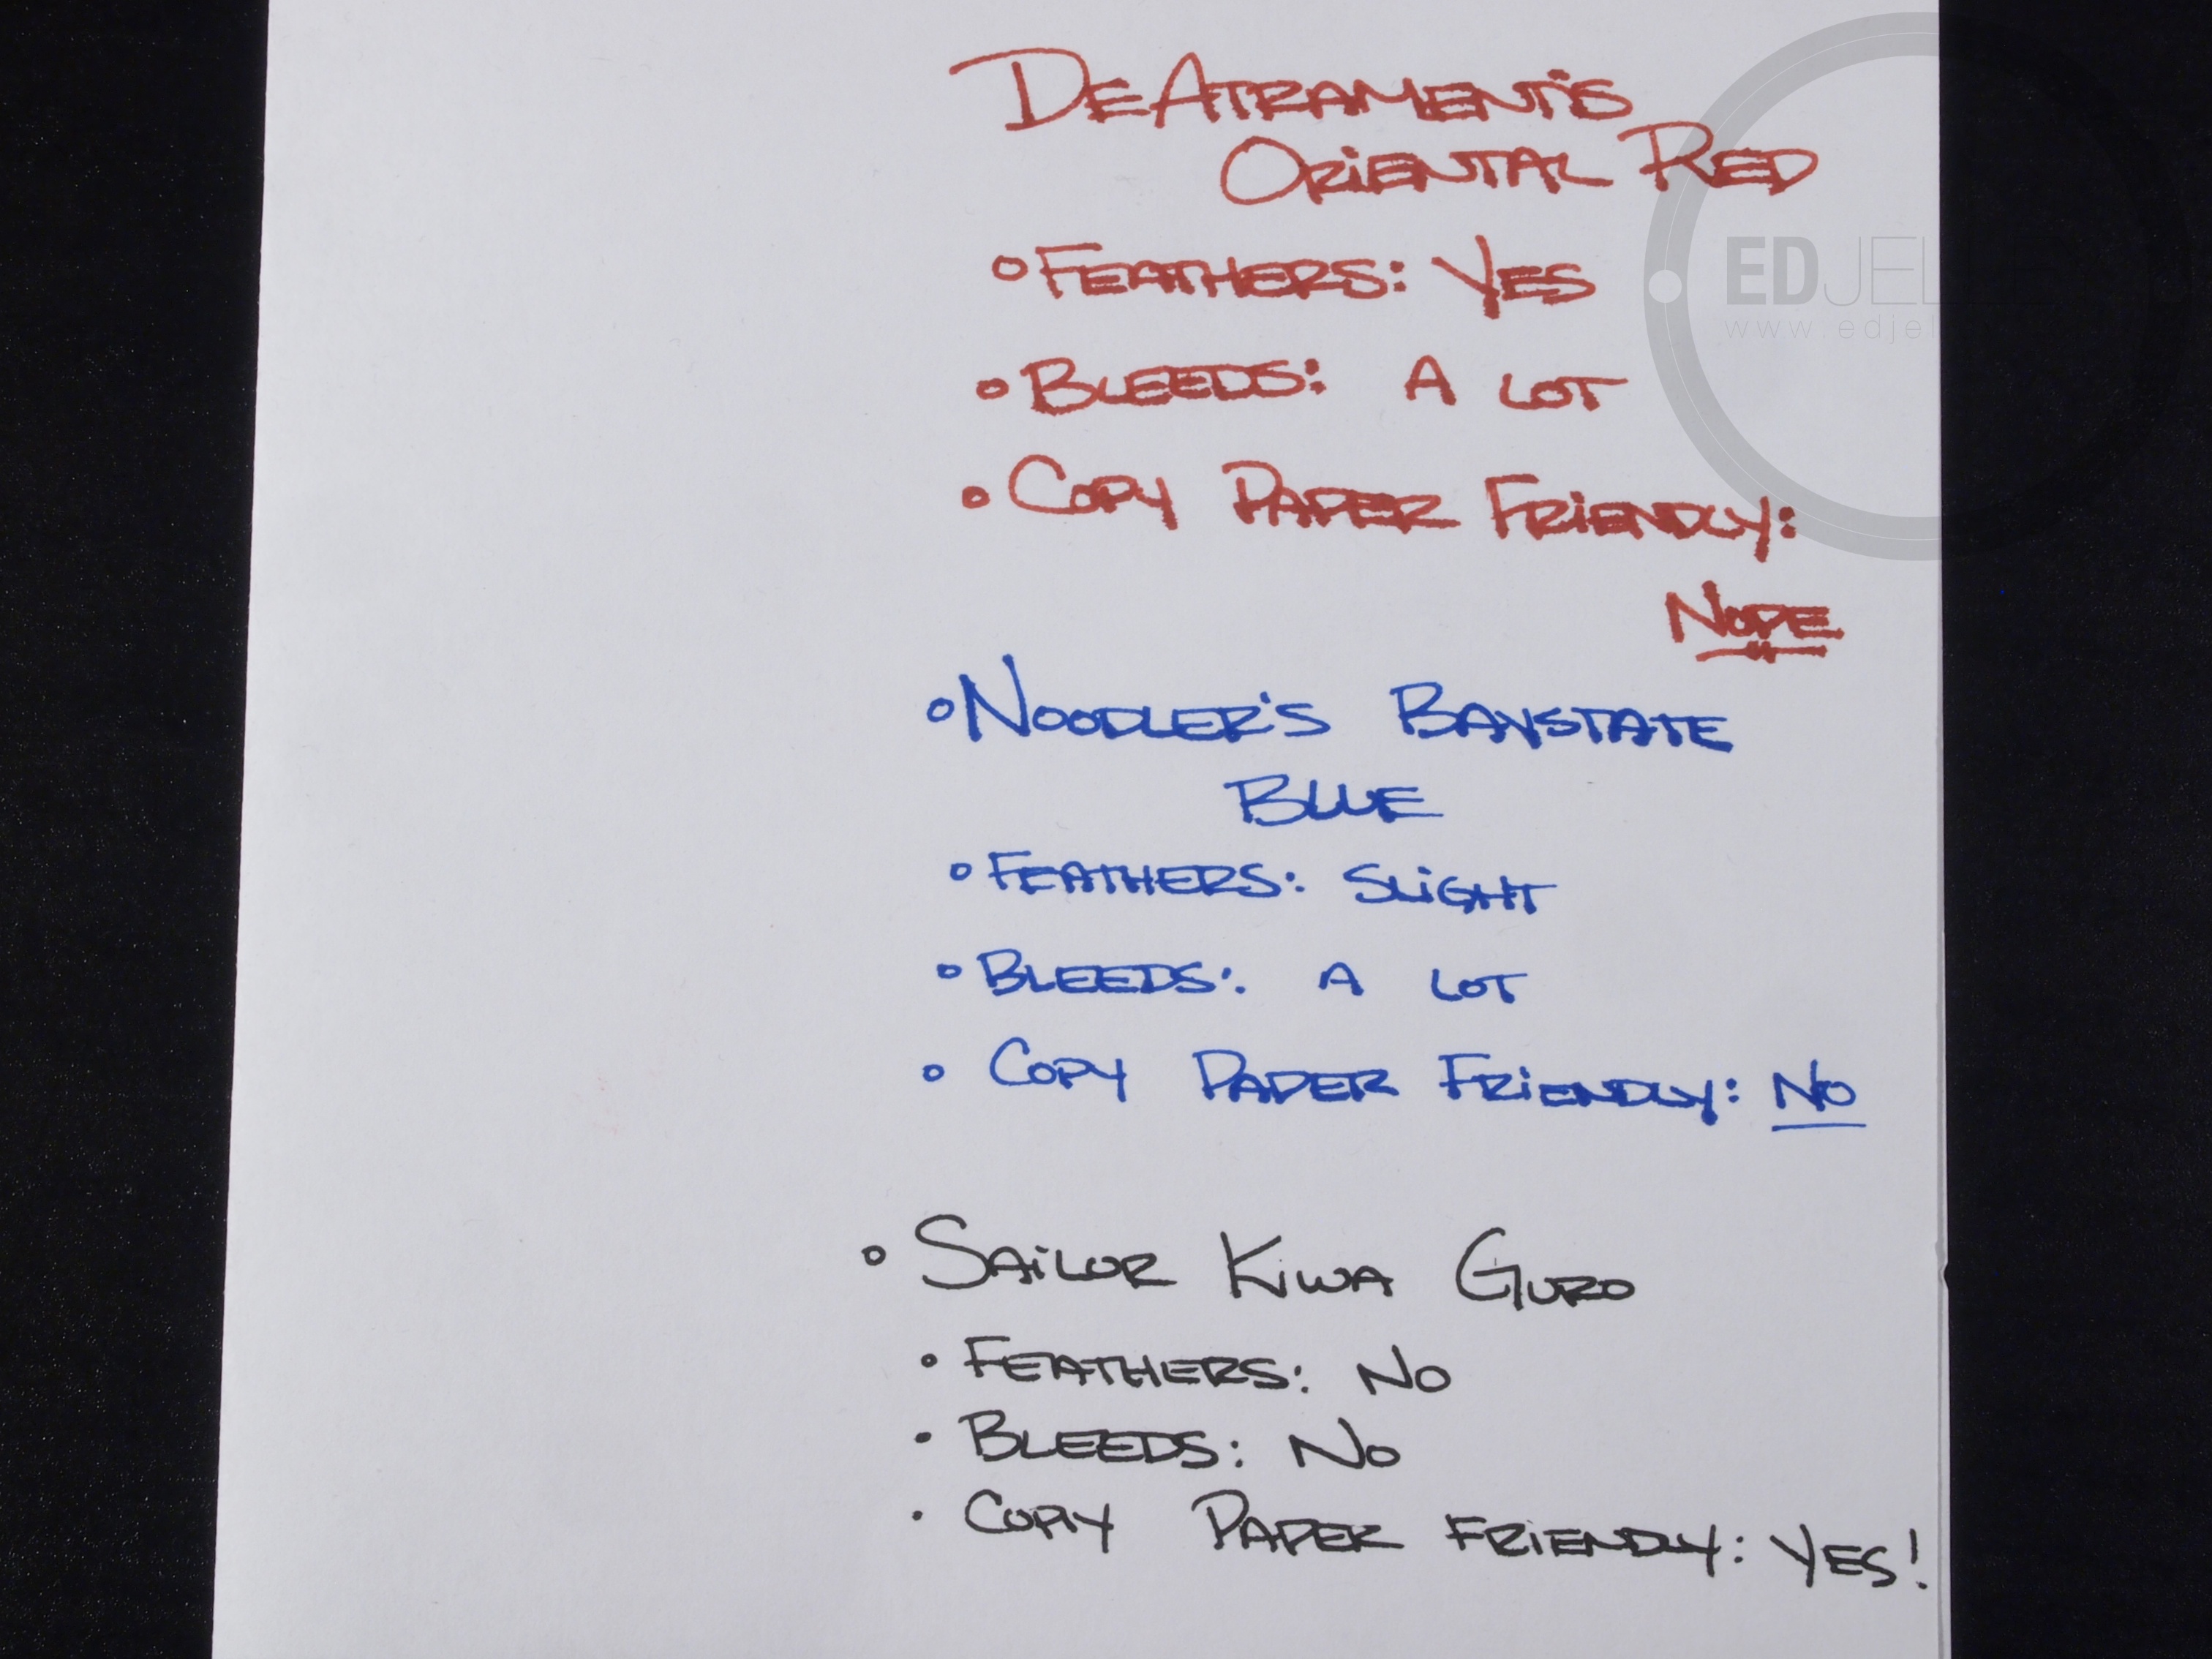 DeAtrament's
Oriental Red
Feathers: Yes
Bleeds: A lot
Copy Paper Friendly:
Nope
Noodler's Baystate
Blue
Feathers: Slight
Bleeds: A lot
Copy Paper Friendly: No
Sailor Kiwa Guro
Feathers: No
Bleeds: No
Copy Paper Friendly: Yes!
EDJEL
www.edjel